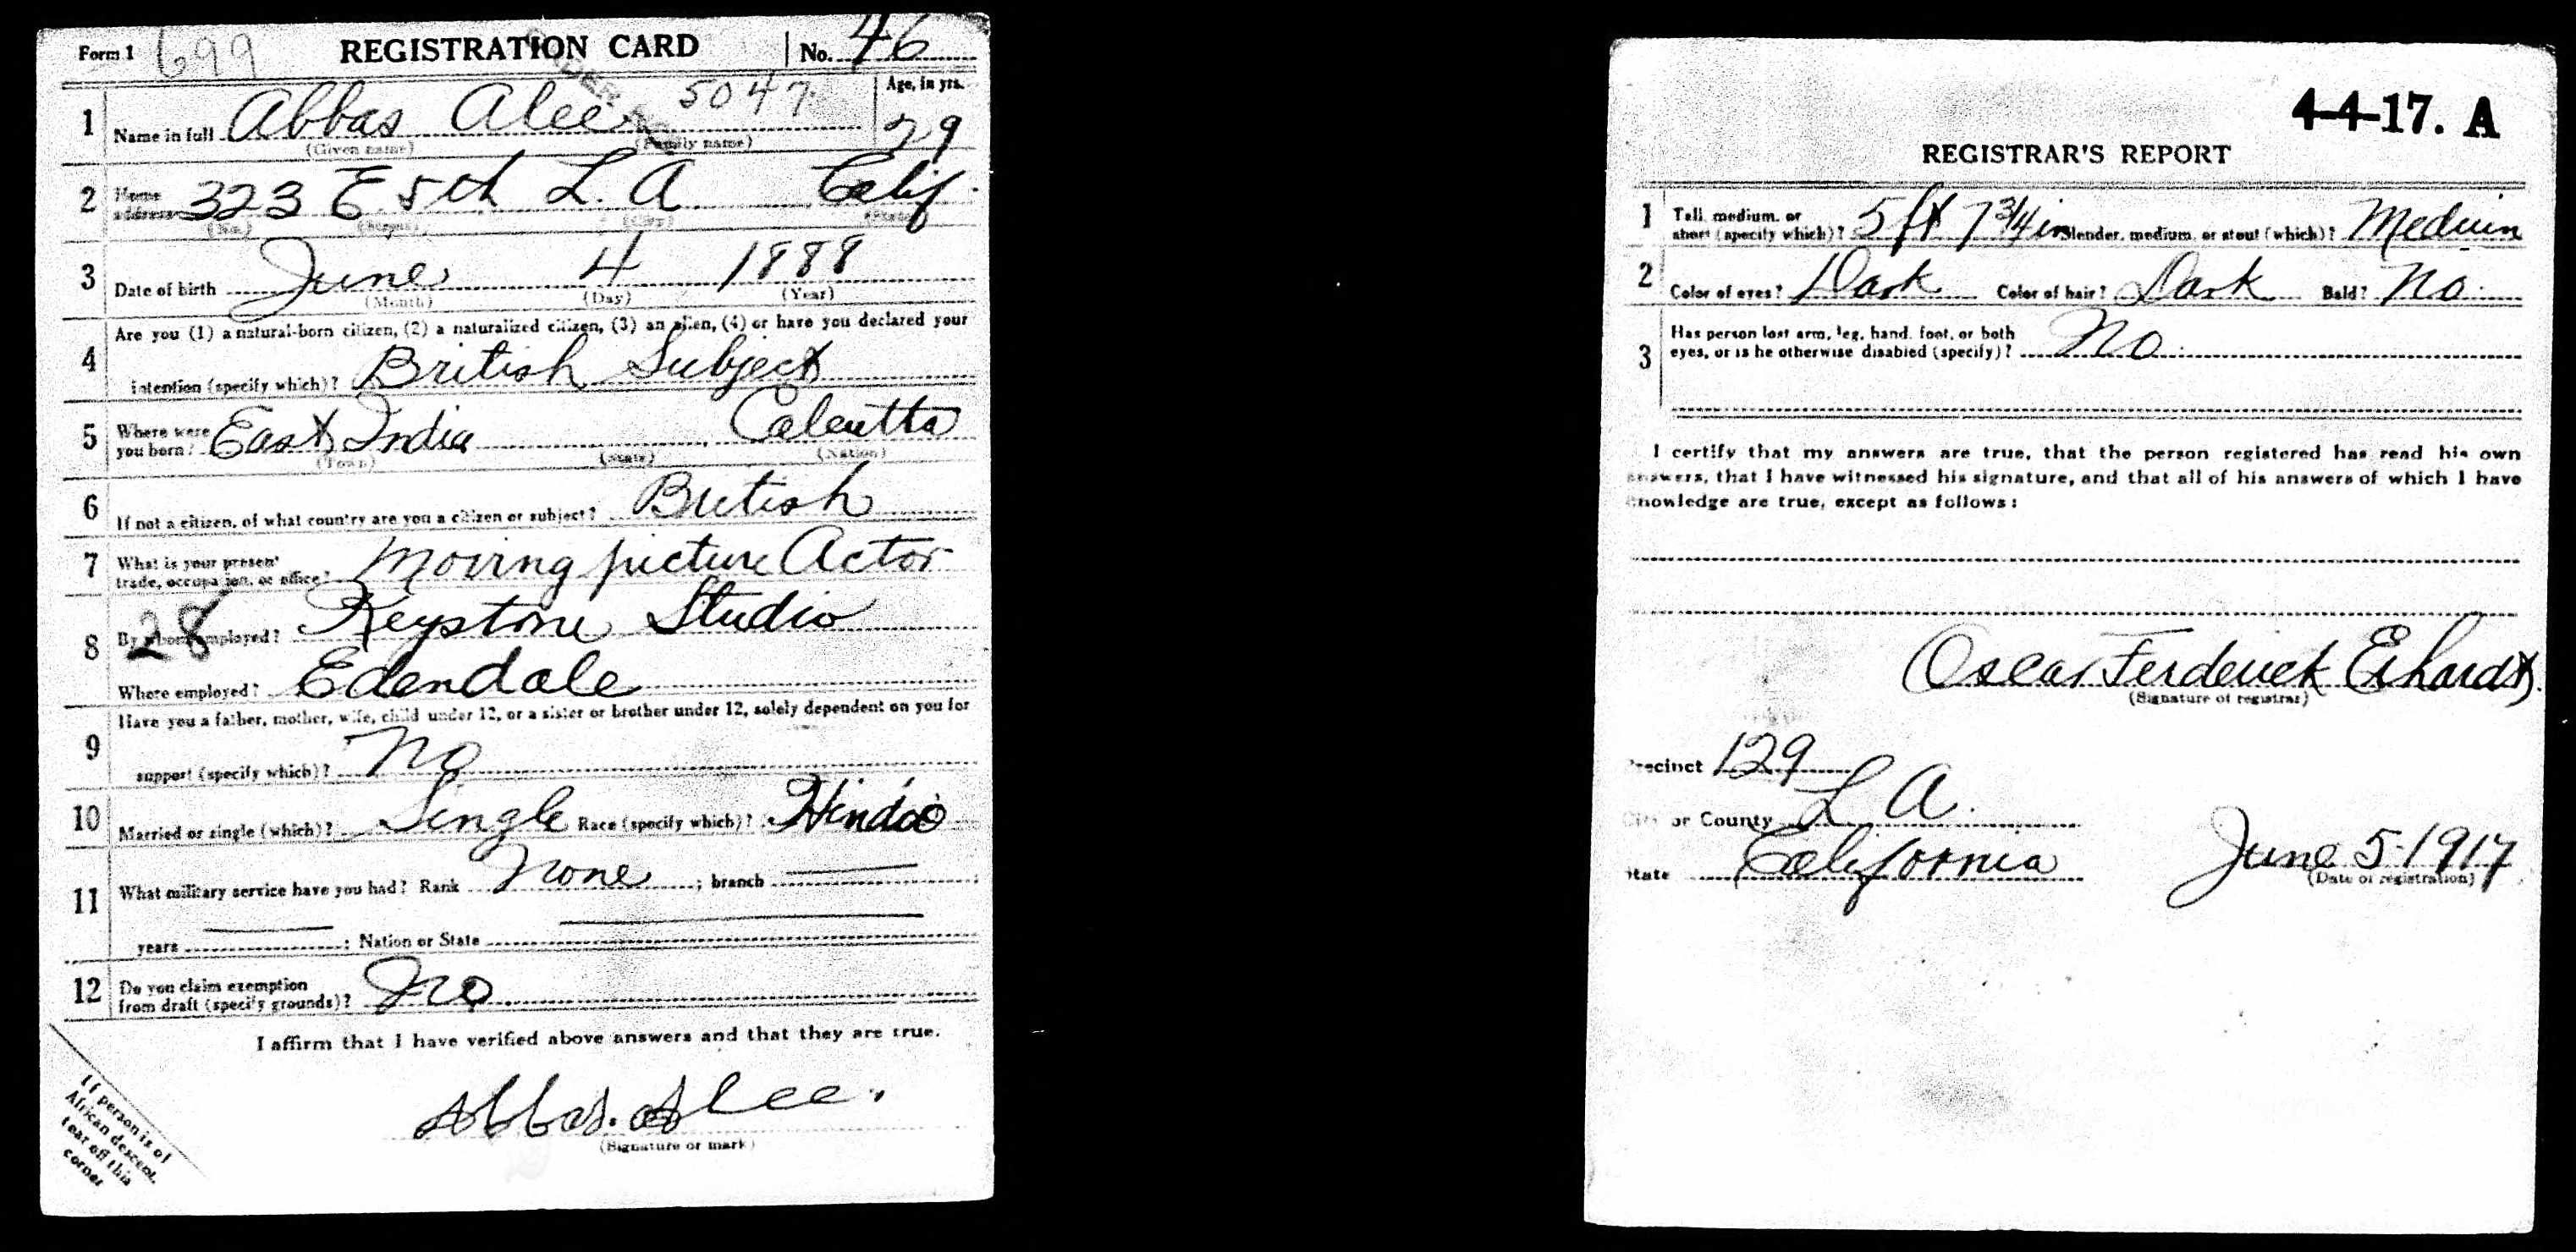 Form 1 699 REGISTRATION CARD No. 46
1 Name in full Abbas Alee 5047 Age, in yrs.
(Given name) (Family name) 29
2 Home address 323 E 5th L. A Calif.
(No.) (Street) (City) (State)
3 Date of birth June 4 1888
(Month) (Day) (Year)
4 Are you (1) a natural-born citizen, (2) a naturalized citizen, (3) an alien, (4) or have you declared your
intention (specify which)? British Subject
5 Where were you born? East India Calcutta
(Town) (State) (Nation)
6 If not a citizen, of what country are you a citizen or subject? British
7 What is your present trade, occupation, or office? Moving picture Actor
8 By whom employed? Keystone Studio
28
Where employed? Edendale
9 Have you a father, mother, wife, child under 12, or a sister or brother under 12, solely dependent on you for
support (specify which)? No
10 Married or single (which)? Single Race (specify which)? Hindoo
11 What military service have you had? Rank None ; branch
years ; Nation or State
12 Do you claim exemption
from draft (specify grounds)? No
I affirm that I have verified above answers and that they are true.
Abbas. Alee.
(Signature or mark)
If person is of
African descent,
tear off this
corner
4-4-17. A
REGISTRAR'S REPORT
1 Tall, medium, or
short (specify which)? 5 ft 7 3/4 in Slender, medium, or stout (which)? Medium
2 Color of eyes? Dark Color of hair? Dark Bald? No.
3 Has person lost arm, leg, hand, foot, or both
eyes, or is he otherwise disabled (specify)? No.
I certify that my answers are true, that the person registered has read his own
answers, that I have witnessed his signature, and that all of his answers of which I have
knowledge are true, except as follows:
Oscar Ferderick Erhardt
(Signature of registrar)
Precinct 129
City or County L A.
State California June 5-1917
(Date of registration)